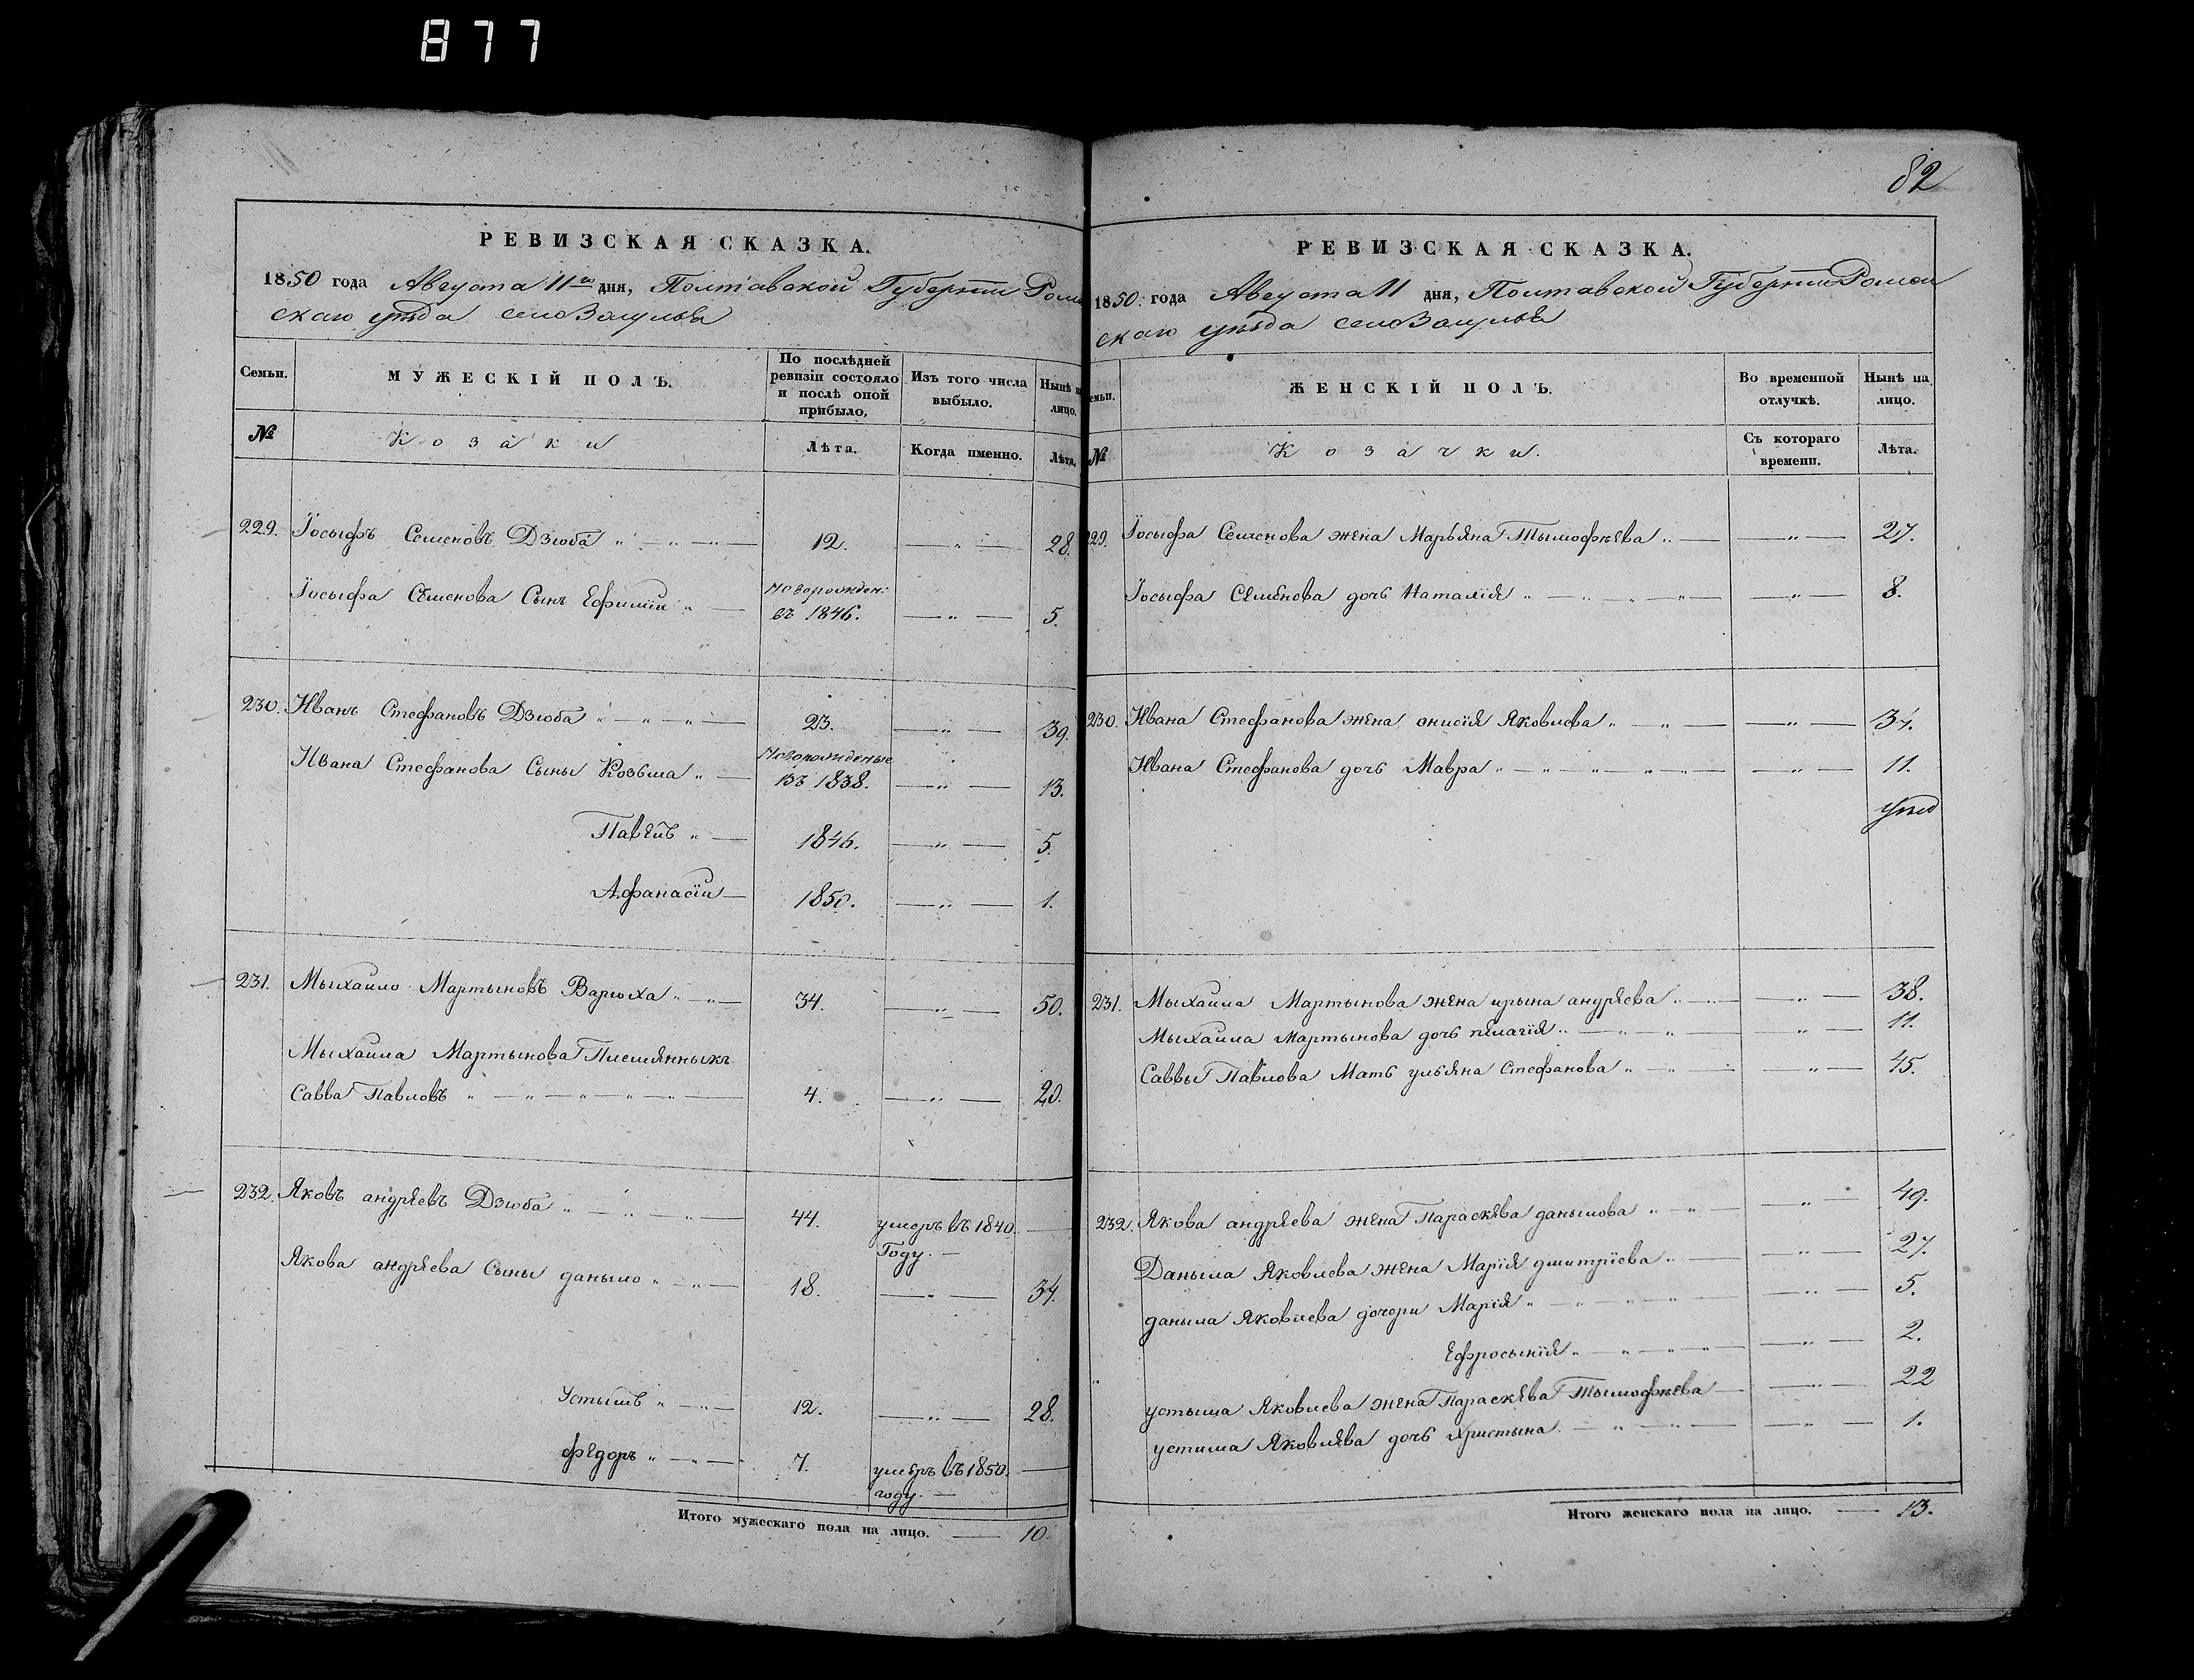 877
РЕВИЗСКАЯ СКАЗКА.
1850 года Августа 11го дня, Полтавской Губернии Ромен
скаго уезда село Засулье
Семьи.
МУЖЕСКІЙ ПОЛЪ.
По послѣдней
ревизіи состояло
и послѣ оной
прибыло.
Изъ того числа
выбыло.
Нынѣ на
лицо.
№
Козаки
Лѣта.
Когда именно.
Лѣта.
229. Іосыфъ Семеновъ Дзюба 12. 28.
Іосыфа Семенова Сынъ Ефимій Новорожден:
въ 1846. 5.
230. Иванъ Стефановъ Дзюба 23. 39.
Ивана Стефанова Сыны Козьма Новорожденые
въ 1838. 13.
Павелъ 1846. 5.
Афанасій 1850. 1.
231. Мыхайло Мартыновъ Варюха 34. 50.
Мыхайла Мартынова Племянныкъ
Савва Павловъ 4. 20.
232. Яковъ андреевъ Дзюба 44. умеръ въ 1840.
Году.
Якова андреева Сыны даныло 18. 34.
Устымъ 12. 28.
федоръ 7. умеръ въ 1850.
году.
Итого мужескаго пола на лицо. 10.
82
РЕВИЗСКАЯ СКАЗКА.
1850. года Августа 11 дня, Полтавской Губерніи Ромен
скаго уѣзда село Засулье
емьи.
ЖЕНСКІЙ ПОЛЪ.
Во временной
отлучкѣ.
Нынѣ на
лицо.
№
Козачки.
Съ котораго
времени.
Лѣта.
229. Іосыфа Семенова жена Марьяна Тымофѣева 27.
Іосыфа Семенова дочь Наталія 8.
230. Ивана Стефанова жена онисія Яковлева 37.
Ивана Стефанова дочь Мавра 11.
231. Мыхаила Мартынова жена ирына андреева 38.
Мыхаила Мартынова дочь пелагія 11.
Саввы Павлова Мать ульяна Стефанова 45.
232. Якова андреева жена Параскева данылова 49.
Даныла Яковлева жена Марія дмитріева 27.
даныла Яковлева дочери Марія 5.
Ефросынія 2.
устыма Яковлева жена Параскева Тымофѣева 22
устима Яковлева дочь христына 1.
Итого женскаго пола на лицо. 13.